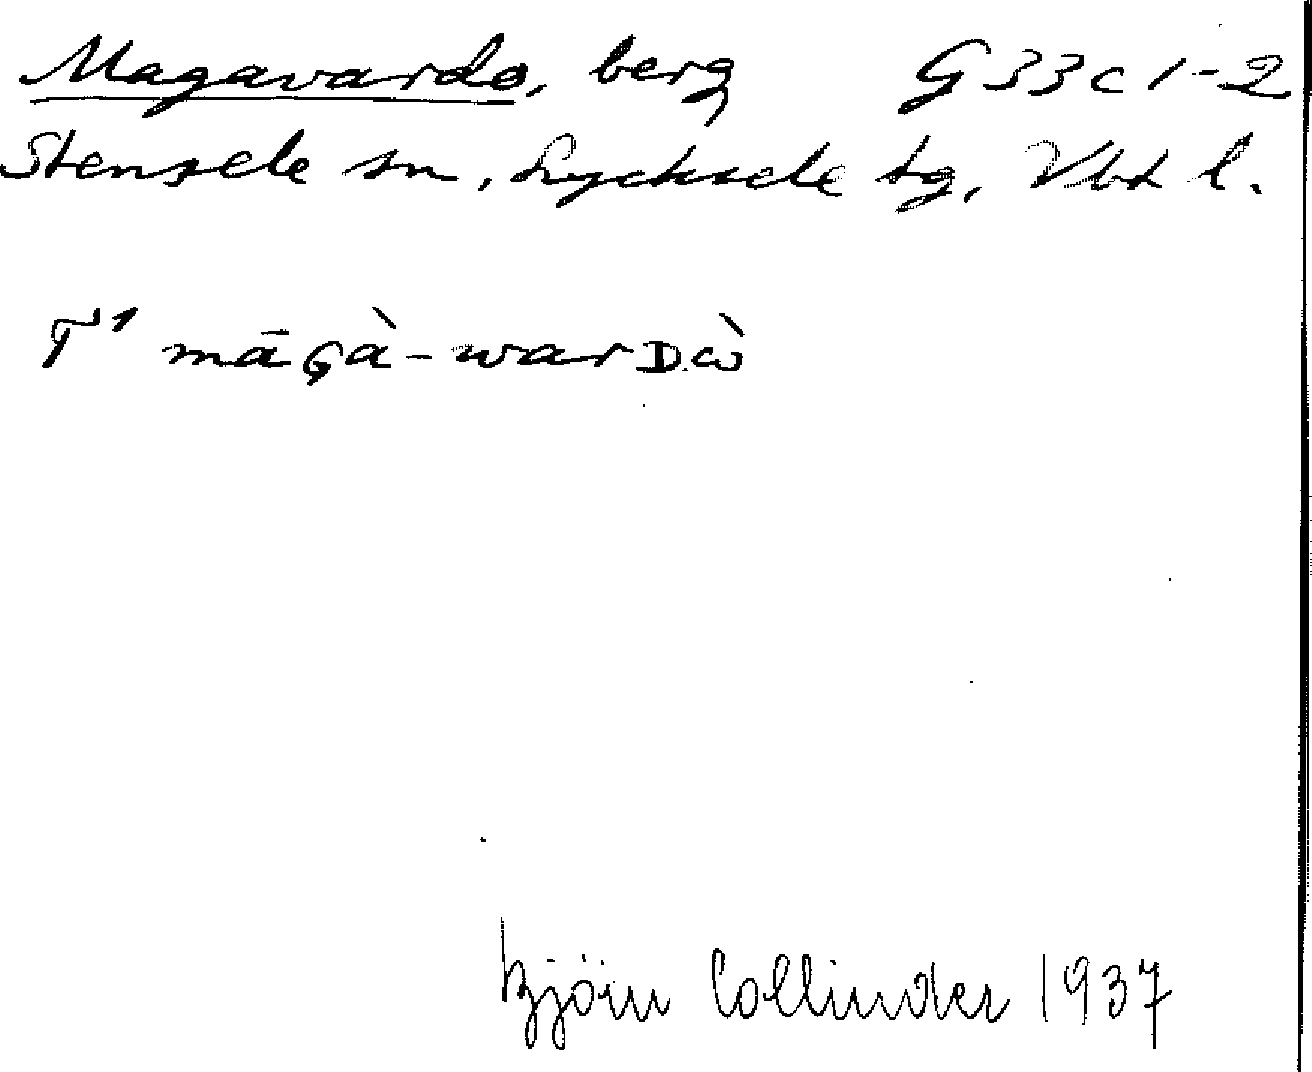 Magavardo, berg G33c1-2
Stensele sn, Lycksele tg, Vbt l.
T¹ māGà-warDὼ
Björn Collinder 1937